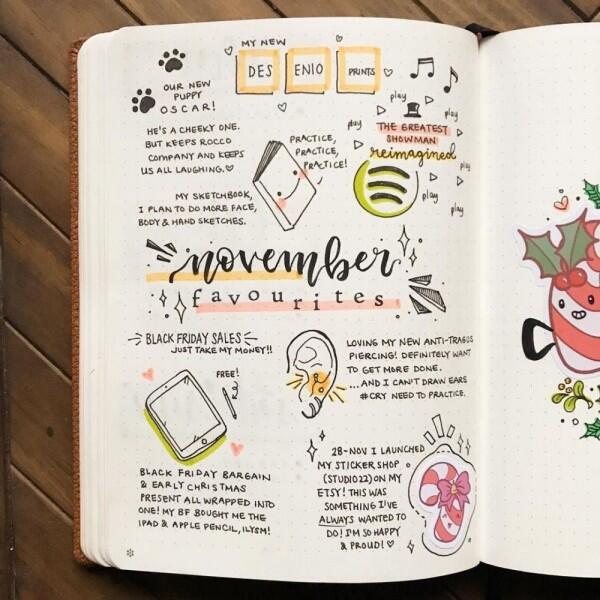 MY NEW
DESENIO PRINTS
OUR NEW
PUPPY
OSCAR!
HE'S A CHEEKY ONE.
BUT KEEPS ROCCO
COMPANY AND KEEPS
US ALL LAUGHING.
PRACTICE,
PRACTICE,
PRACTICE!
MY SKETCHBOOK,
I PLAN TO DO MORE FACE,
BODY & HAND SKETCHES.
play
play
play
THE GREATEST
SHOWMAN
reimagined
play
play
play
november
favourites
BLACK FRIDAY SALES
JUST TAKE MY MONEY!!
FREE!
BLACK FRIDAY BARGAIN
& EARLY CHRISTMAS
PRESENT ALL WRAPPED INTO
ONE! MY BF BOUGHT ME THE
IPAD & APPLE PENCIL, ILYSM!
LOVING MY NEW ANTI-TRAGUS
PIERCING! DEFINITELY WANT
TO GET MORE DONE.
...AND I CAN'T DRAW EARS
#CRY NEED TO PRACTICE.
28-NOV I LAUNCHED
MY STICKER SHOP
(STUDIO22) ON MY
ETSY! THIS WAS
SOMETHING I'VE
ALWAYS WANTED TO
DO! I'M SO HAPPY
& PROUD!